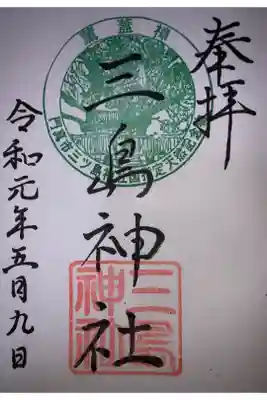 奉拝
三島神社
令和元年五月九日
三島
神社